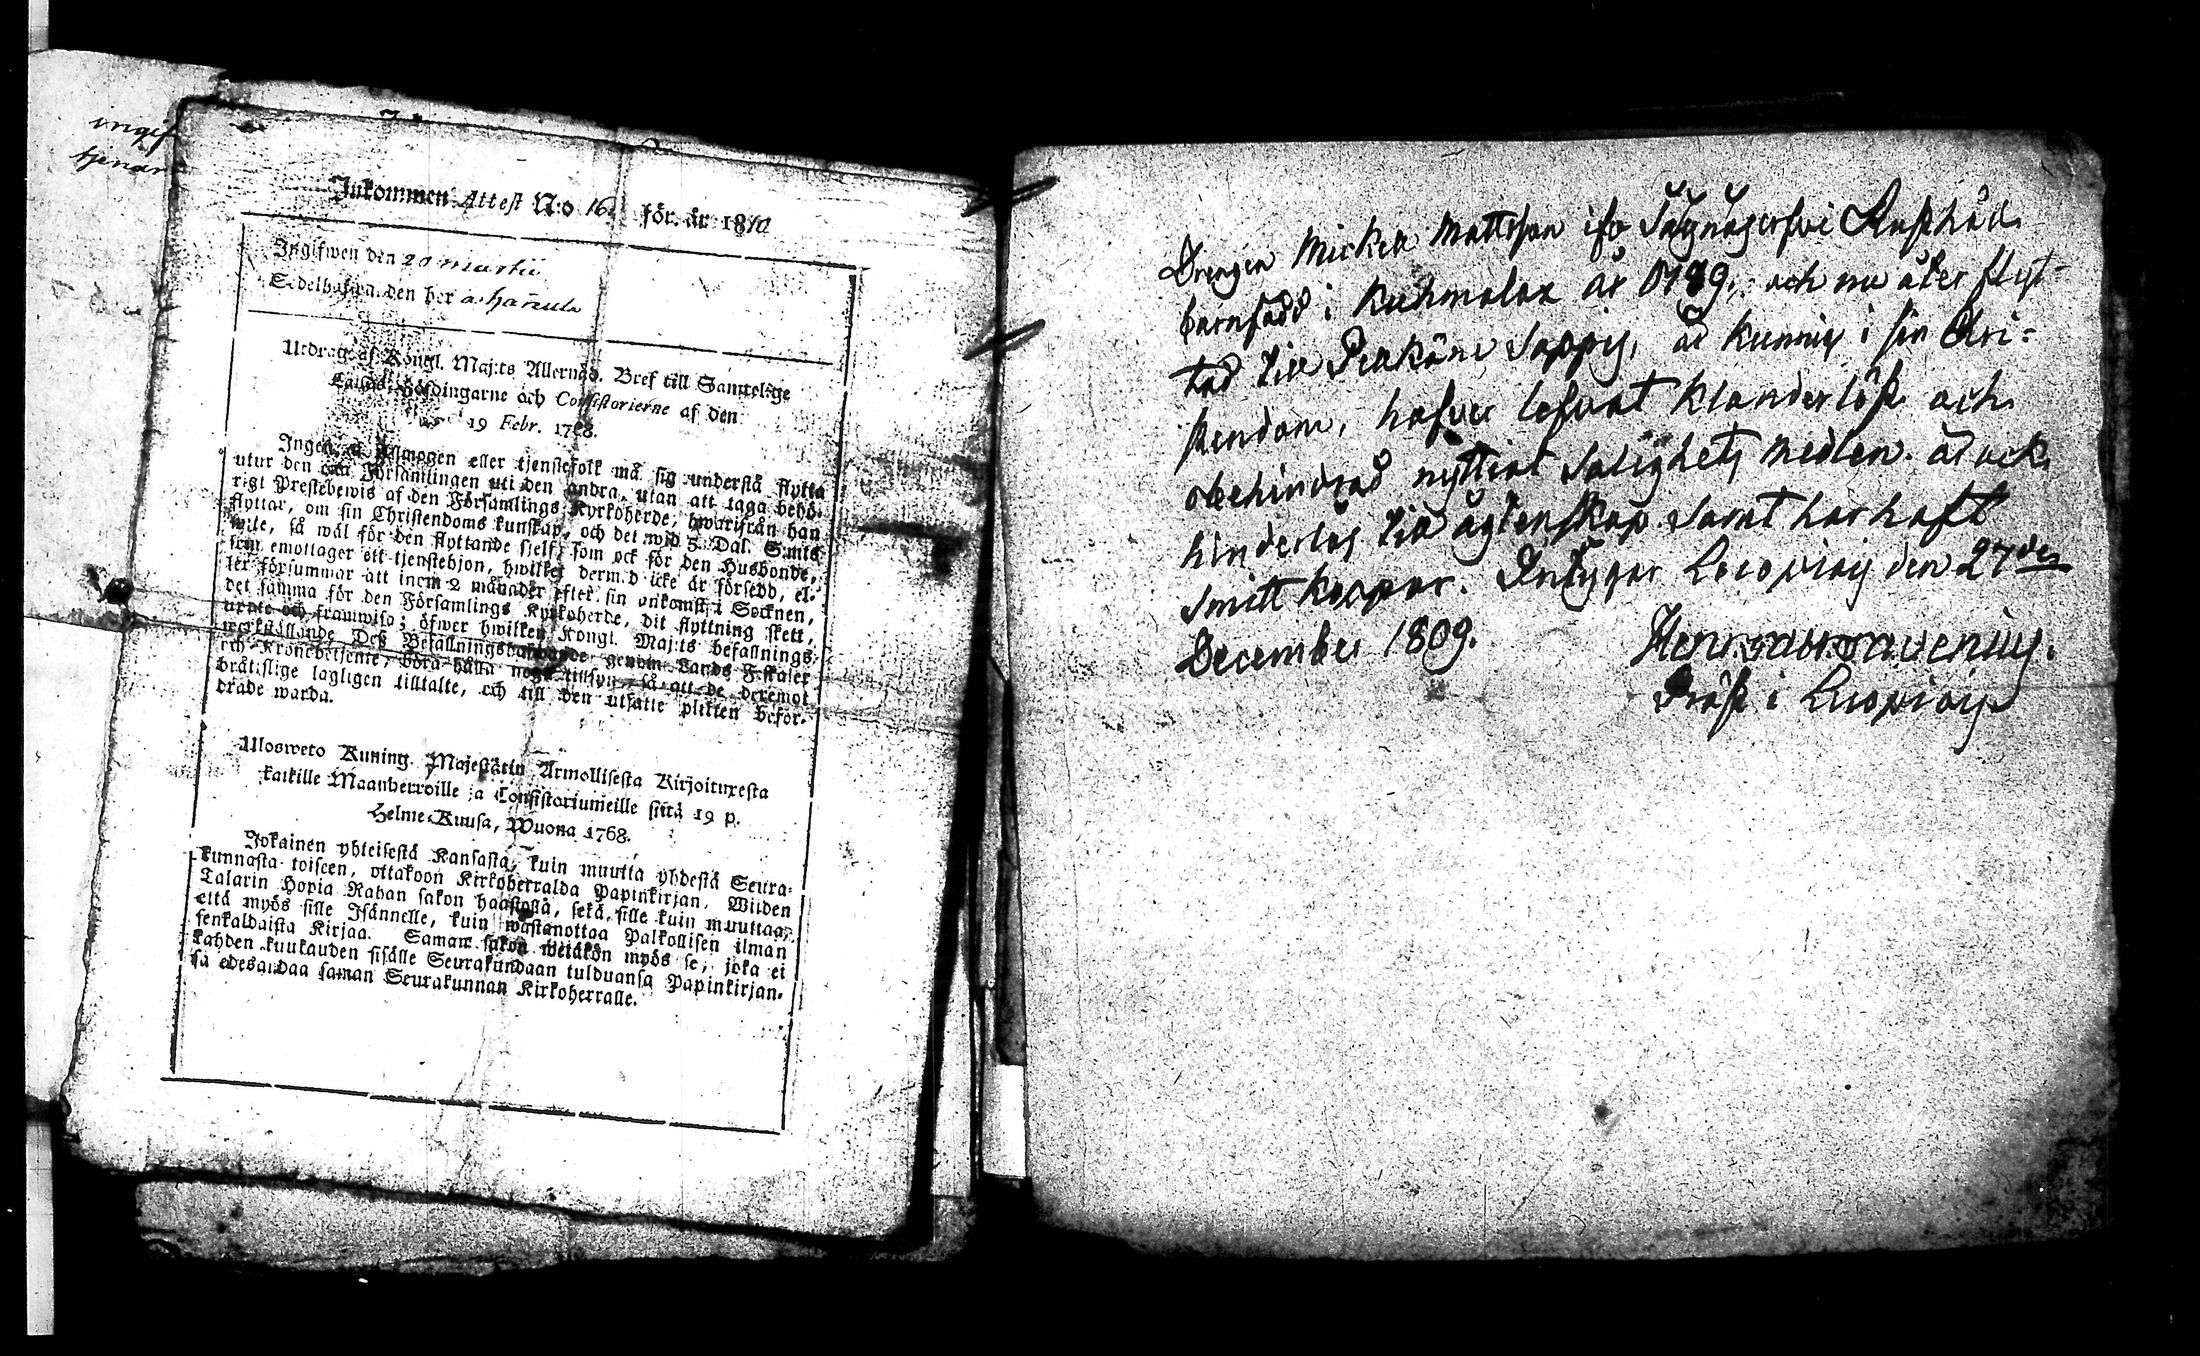 ungif
tjenar
Inkommen Attest N:o 16 för år 1810
Ingifwen den 20 martii
Sedelhafwa den her
Utdrag af Kongl. Maj:ts Allernåd. Bref till Samtelige
Lands-Höfdingarne och Consistorierne af den
19 Febr. 1768.
Ingen af Allmogen eller tjenstefolk må sig understå flytta
utur den ena Församlingen uti den andra, utan att taga behö-
rigt Prestebewis af den Församlings Kyrkoherde, hwarifrån han
flyttar, om sin Christendoms kunskap, och det wid 5 Dal. S:mts
wite, så wäl för den flyttande sjelf, som ock för den Husbonde,
som emottager ett tjenstehjon, hwilket dermed icke är försedd, el-
ler försummar att inom 2 månader efter sin ankomst i Socknen,
det samma för den Församlings Kyrkoherde, dit flyttning skett,
upte och framwisa; öfwer hwilken Kongl. Maj:ts befallnings
werkställande Deß Befallningshafwande genom Lands Fiskaler
och Kronobetjente, böra hålla noga tillsyn, så att de deremot
brätslige lagligen tilltalte, och till den utsatte plikten befor-
drade warda.
Ulosweto Kuning. Majestätin Armollisesta Kirjoituxesta
kaikille Maanherroille ja Consistoriumeille siitä 19 p.
Helme-Kuusa, Wuona 1768.
Jokainen yhteisestä Kansasta, kuin muutta yhdestä Seura-
kunnasta toiseen, ottakoon Kirkoherralda Papinkirjan, Wiiden
Talarin Hopia Rahan sakon haastolla, sekä sille kuin muuttaa,
että myös sille Isännelle, kuin wastanottaa Palkollisen ilman
senkaldaista Kirjaa. Saman sakon wetäkön myös se, joka ei
kahden kuukauden sisälle Seurakundaan tulduansa Papinkirjan-
sa edesandaa saman Seurakunnan Kirkoherralle.
Drengen Mickel Mattsson ifr
barnfödd i Kuhmalax år 1789, och nu åter flyt-
tad till Pelkäne Sappij, är kunnig i sin Chri-
stendom, hafver lefvat klanderlöst och
obehindrad nyttiat Salighets medlen. är ock
hinderlös till ägtenskap samt har haft
Smitt koppor. Intygar Luopiois den 27de
December 1809.
Pråst i Luopiois